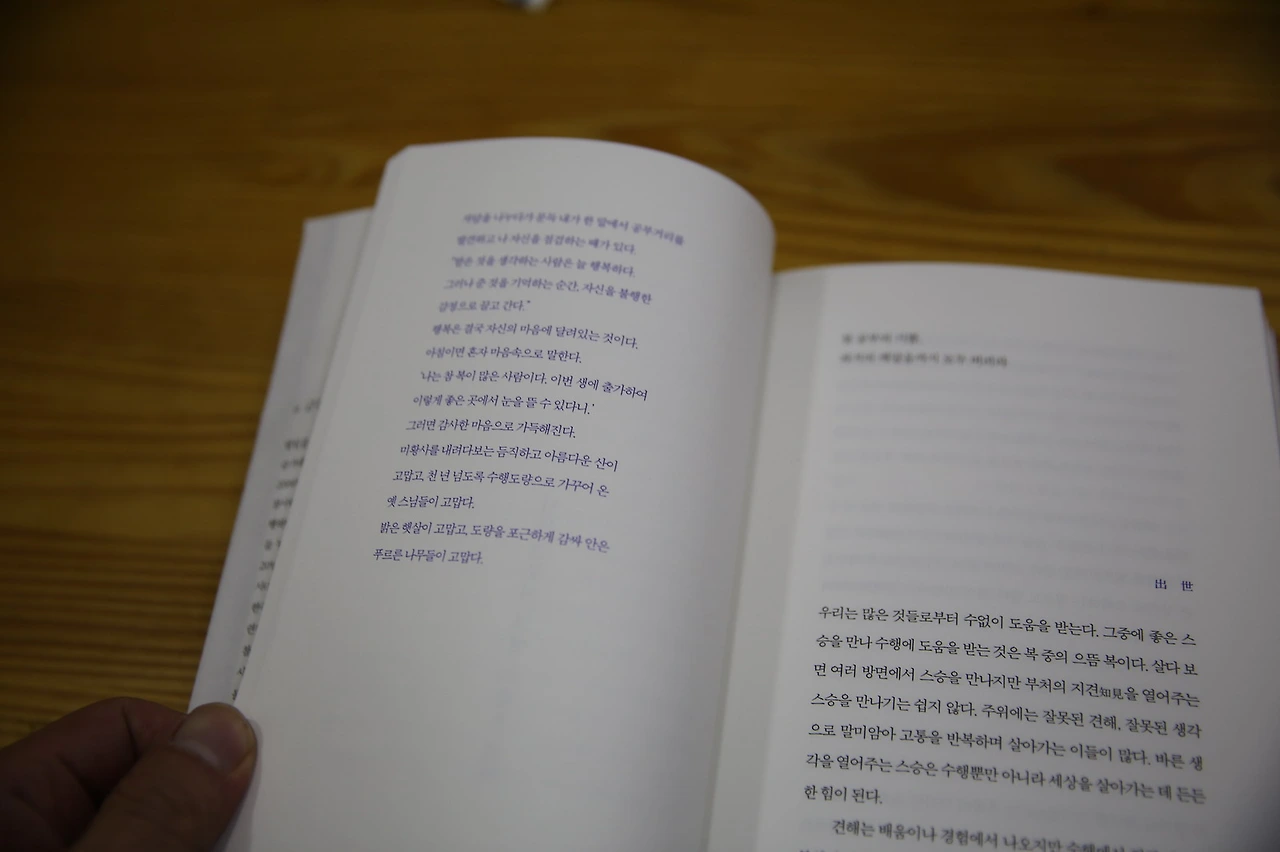 차담을 나누다가 문득 내가 한 말에서 공부거리를
발견하고 나 자신을 점검하는 때가 있다.
"받은 것을 생각하는 사람은 늘 행복하다.
그러나 준 것을 기억하는 순간, 자신을 불행한
감정으로 끌고 간다."
행복은 결국 자신의 마음에 달려있는 것이다.
아침이면 혼자 마음속으로 말한다.
'나는 참 복이 많은 사람이다. 이번 생에 출가하여
이렇게 좋은 곳에서 눈을 뜰 수 있다니.'
그러면 감사한 마음으로 가득해진다.
미황사를 내려다보는 듬직하고 아름다운 산이
고맙고, 천 년 넘도록 수행도량으로 가꾸어 온
옛 스님들이 고맙다.
밝은 햇살이 고맙고, 도량을 포근하게 감싸 안은
푸르른 나무들이 고맙다.
모두 버리라
出 世
우리는 많은 것들로부터 수없이 도움을 받는다. 그중에 좋은 스
승을 만나 수행에 도움을 받는 것은 복 중의 으뜸 복이다. 살다 보
면 여러 방면에서 스승을 만나지만 부처의 지견知見을 열어주는
스승을 만나기는 쉽지 않다. 주위에는 잘못된 견해, 잘못된 생각
으로 말미암아 고통을 반복하며 살아가는 이들이 많다. 바른 생
각을 열어주는 스승은 수행뿐만 아니라 세상을 살아가는 데 든든
한 힘이 된다.
견해는 배움이나 경험에서 나오지만 수행에서